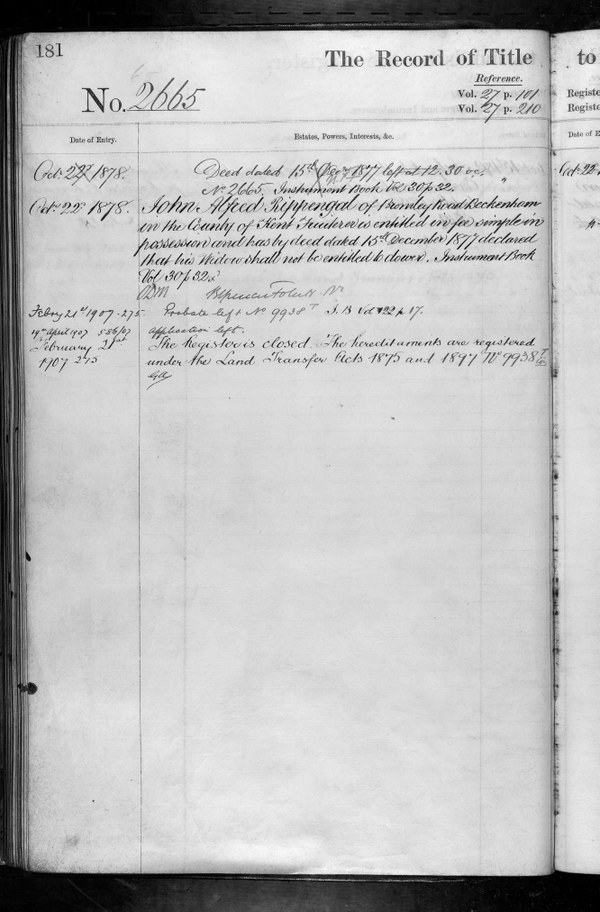 181
The Record of Title
to
Reference.
No. 2665
Vol. 27 p. 101
Vol. 27 p. 210
Registe
Registe
Date of Entry.
Estates, Powers, Interests, &c.
Date of E
Oct. 22nd 1878.
Deed dated 15th Decr 1877 left at 12.30
No 2665. Instrument Book Vol 30 p 32.
Oct. 22
Oct. 22nd 1878.
John Alfred Rippengal of Bromley Road Beckenham
in the County of Kent is entitled in fee simple in
possession and has by deed dated 15th December 1877 declared
that his Widow shall not be entitled to dower. Instrument Book
Vol 30 p 32.
Febry 21st 1907 - 275
Probate left No 9938 I. B Vol 122 p 17.
19th April 1907 586/07
Application left.
February 21st
1907 275
The Register is closed. The hereditaments are registered
under the Land Transfer Acts 1875 and 1897 No 9938